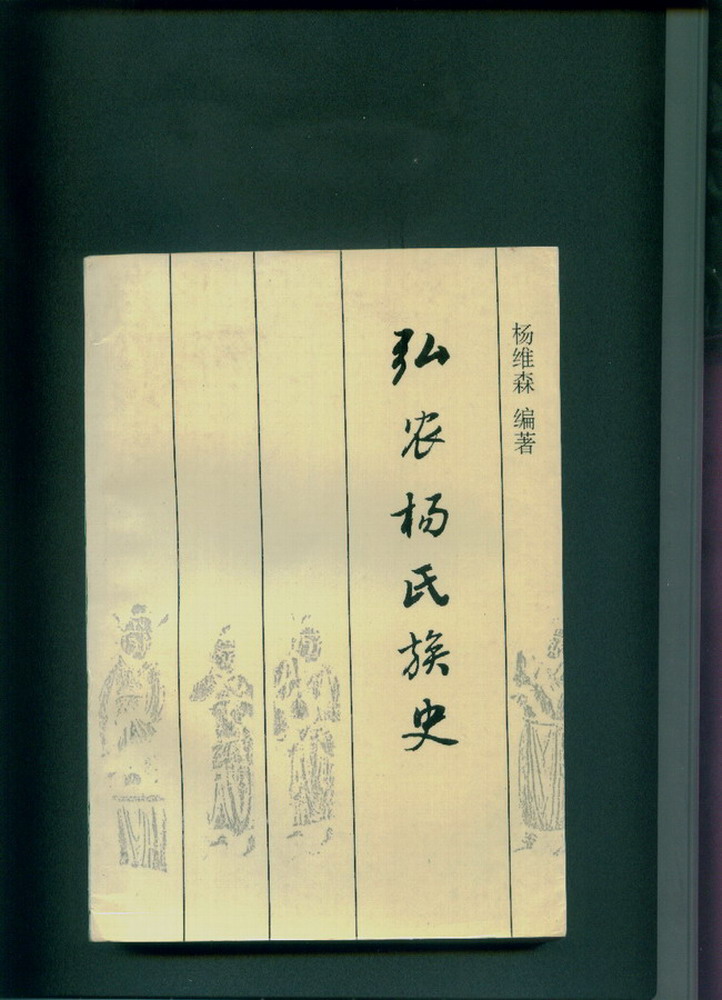 杨维森 编著
弘农杨氏族史